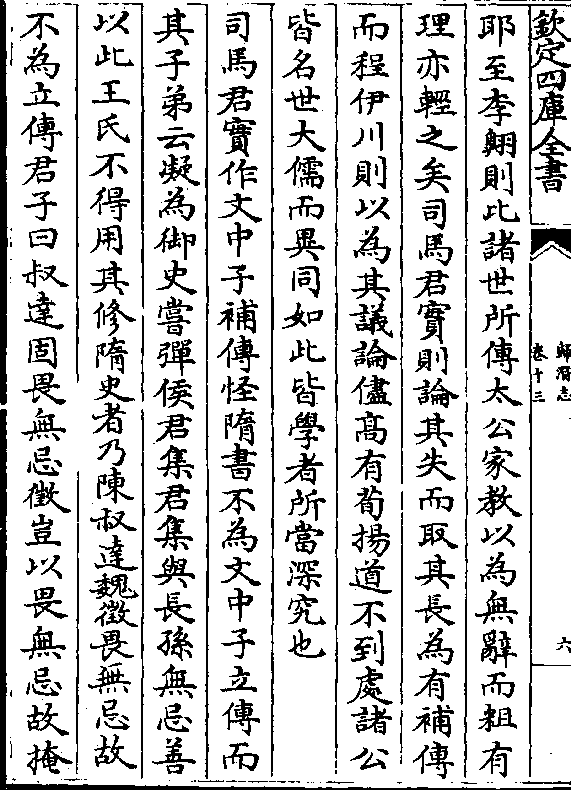 欽定四庫全書
歸潛志
卷十三
六
耶至李翺則比諸世所傳太公家教以為無辭而粗有
理亦輕之矣司馬君實則論其失而取其長為有補傳
而程伊川則以為其議論儘髙有荀揚道不到處諸公
皆名世大儒而異同如此皆學者所當深究也
司馬君實作文中子補傳怪隋書不為文中子立傳而
其子弟云凝為御史嘗彈侯君集君集與長孫無忌善
以此王氏不得用其修隋史者乃陳叔達魏徵畏無忌故
不為立傳君子曰叔達固畏無忌徵豈以畏無忌故掩